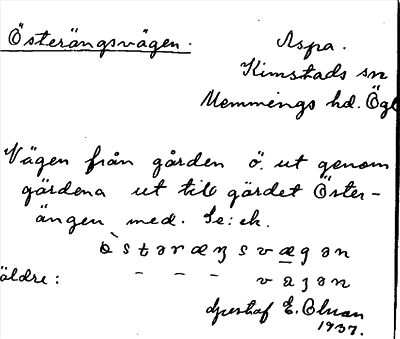 Österängsvägen.
Aspa.
Kimstads sn
Memmings hd. Ögl
Vägen från gården ö. ut genom
gärdena ut till gärdet Öster-
ängen med. Se: ek.
äldre: - - -
Gustaf E. Olsson
1937.